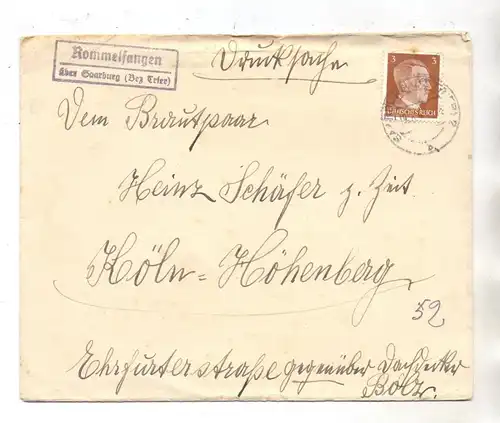 Rommelfangen
über Saarburg (Bez Trier)
Drucksache
3 3
DEUTSCHES REICH
Dem Brautpaar
Heinz Schäfer z. Zeit
Köln-Höhenberg
52
Ehrfurterstraße gegenüber Dachdecker
Bolz.